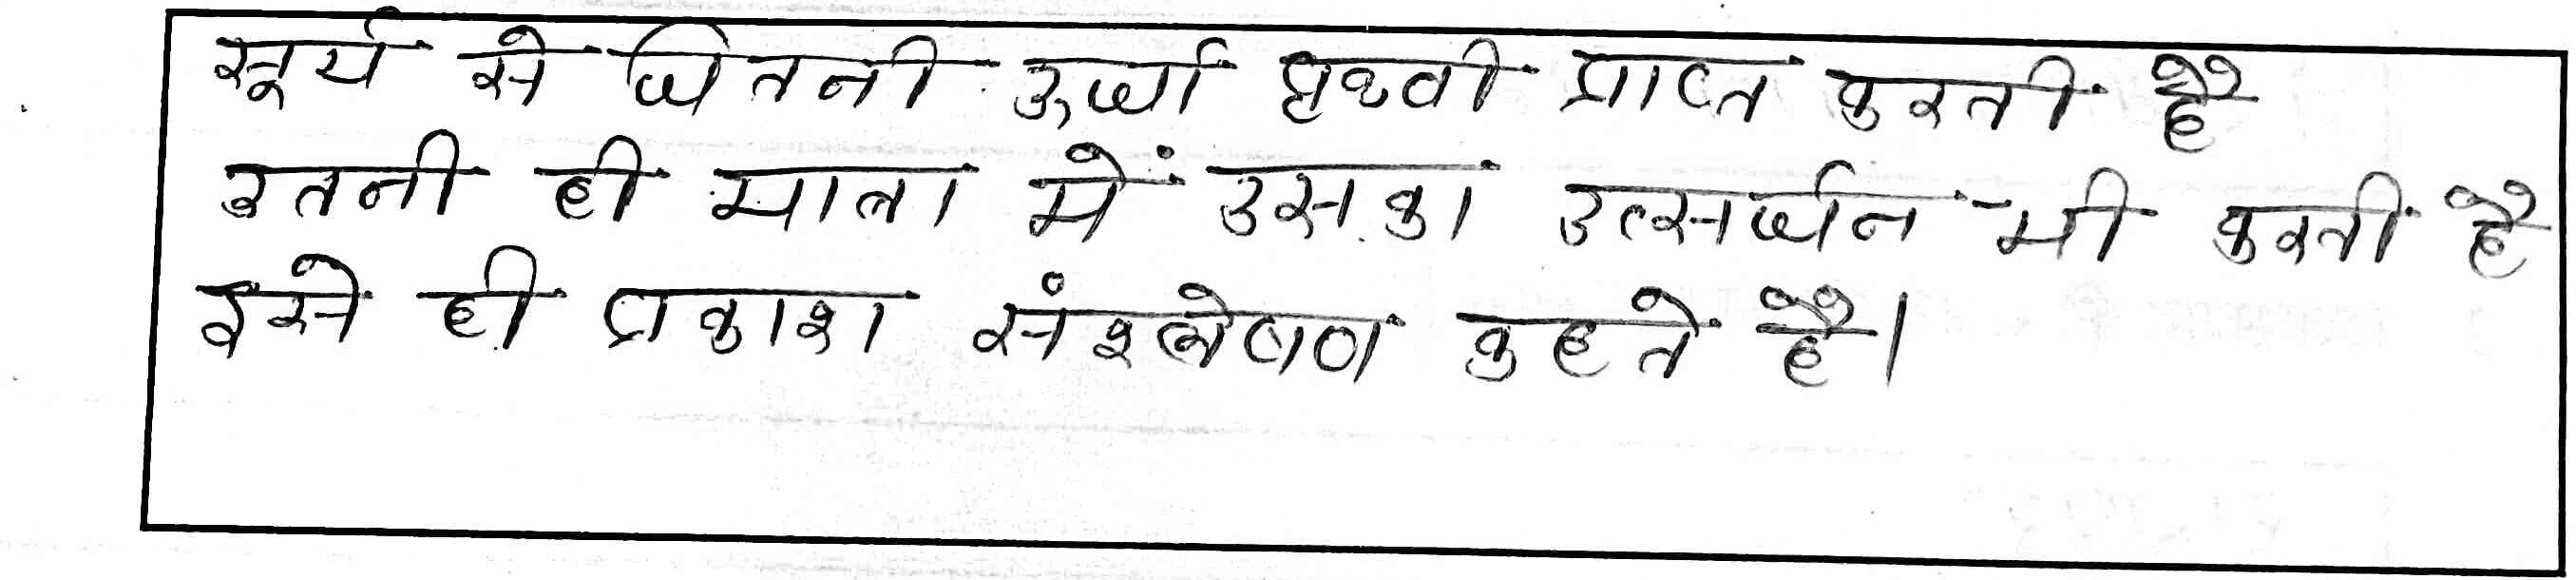 सूर्य से जितनी ऊर्जा पृथ्वी प्राप्त करती है
उतनी ही मात्रा में उसका उत्सर्जन भी करती है
इसे ही प्रकाश संश्लेषण कहते है।